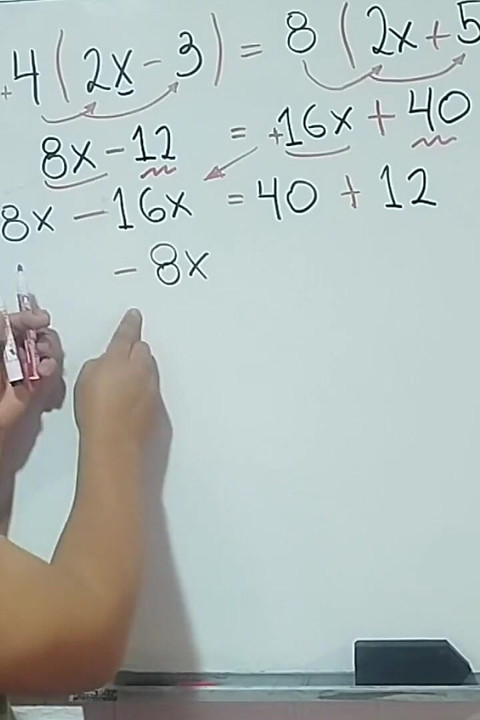 +4(2x-3) = 8(2x+5
8x-12 = +16x+40
8x-16x = 40+12
-8x